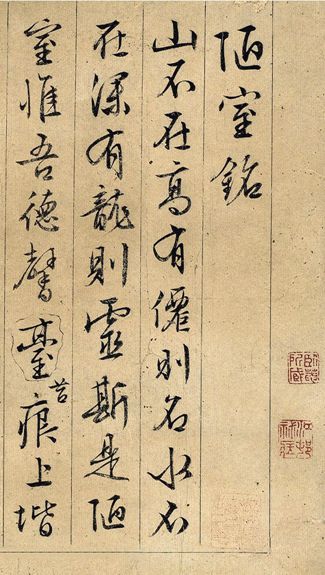 陋室銘
山不在高有僊則名水不
在深有龍則靈斯是陋
室惟吾德馨臺苔痕上堦